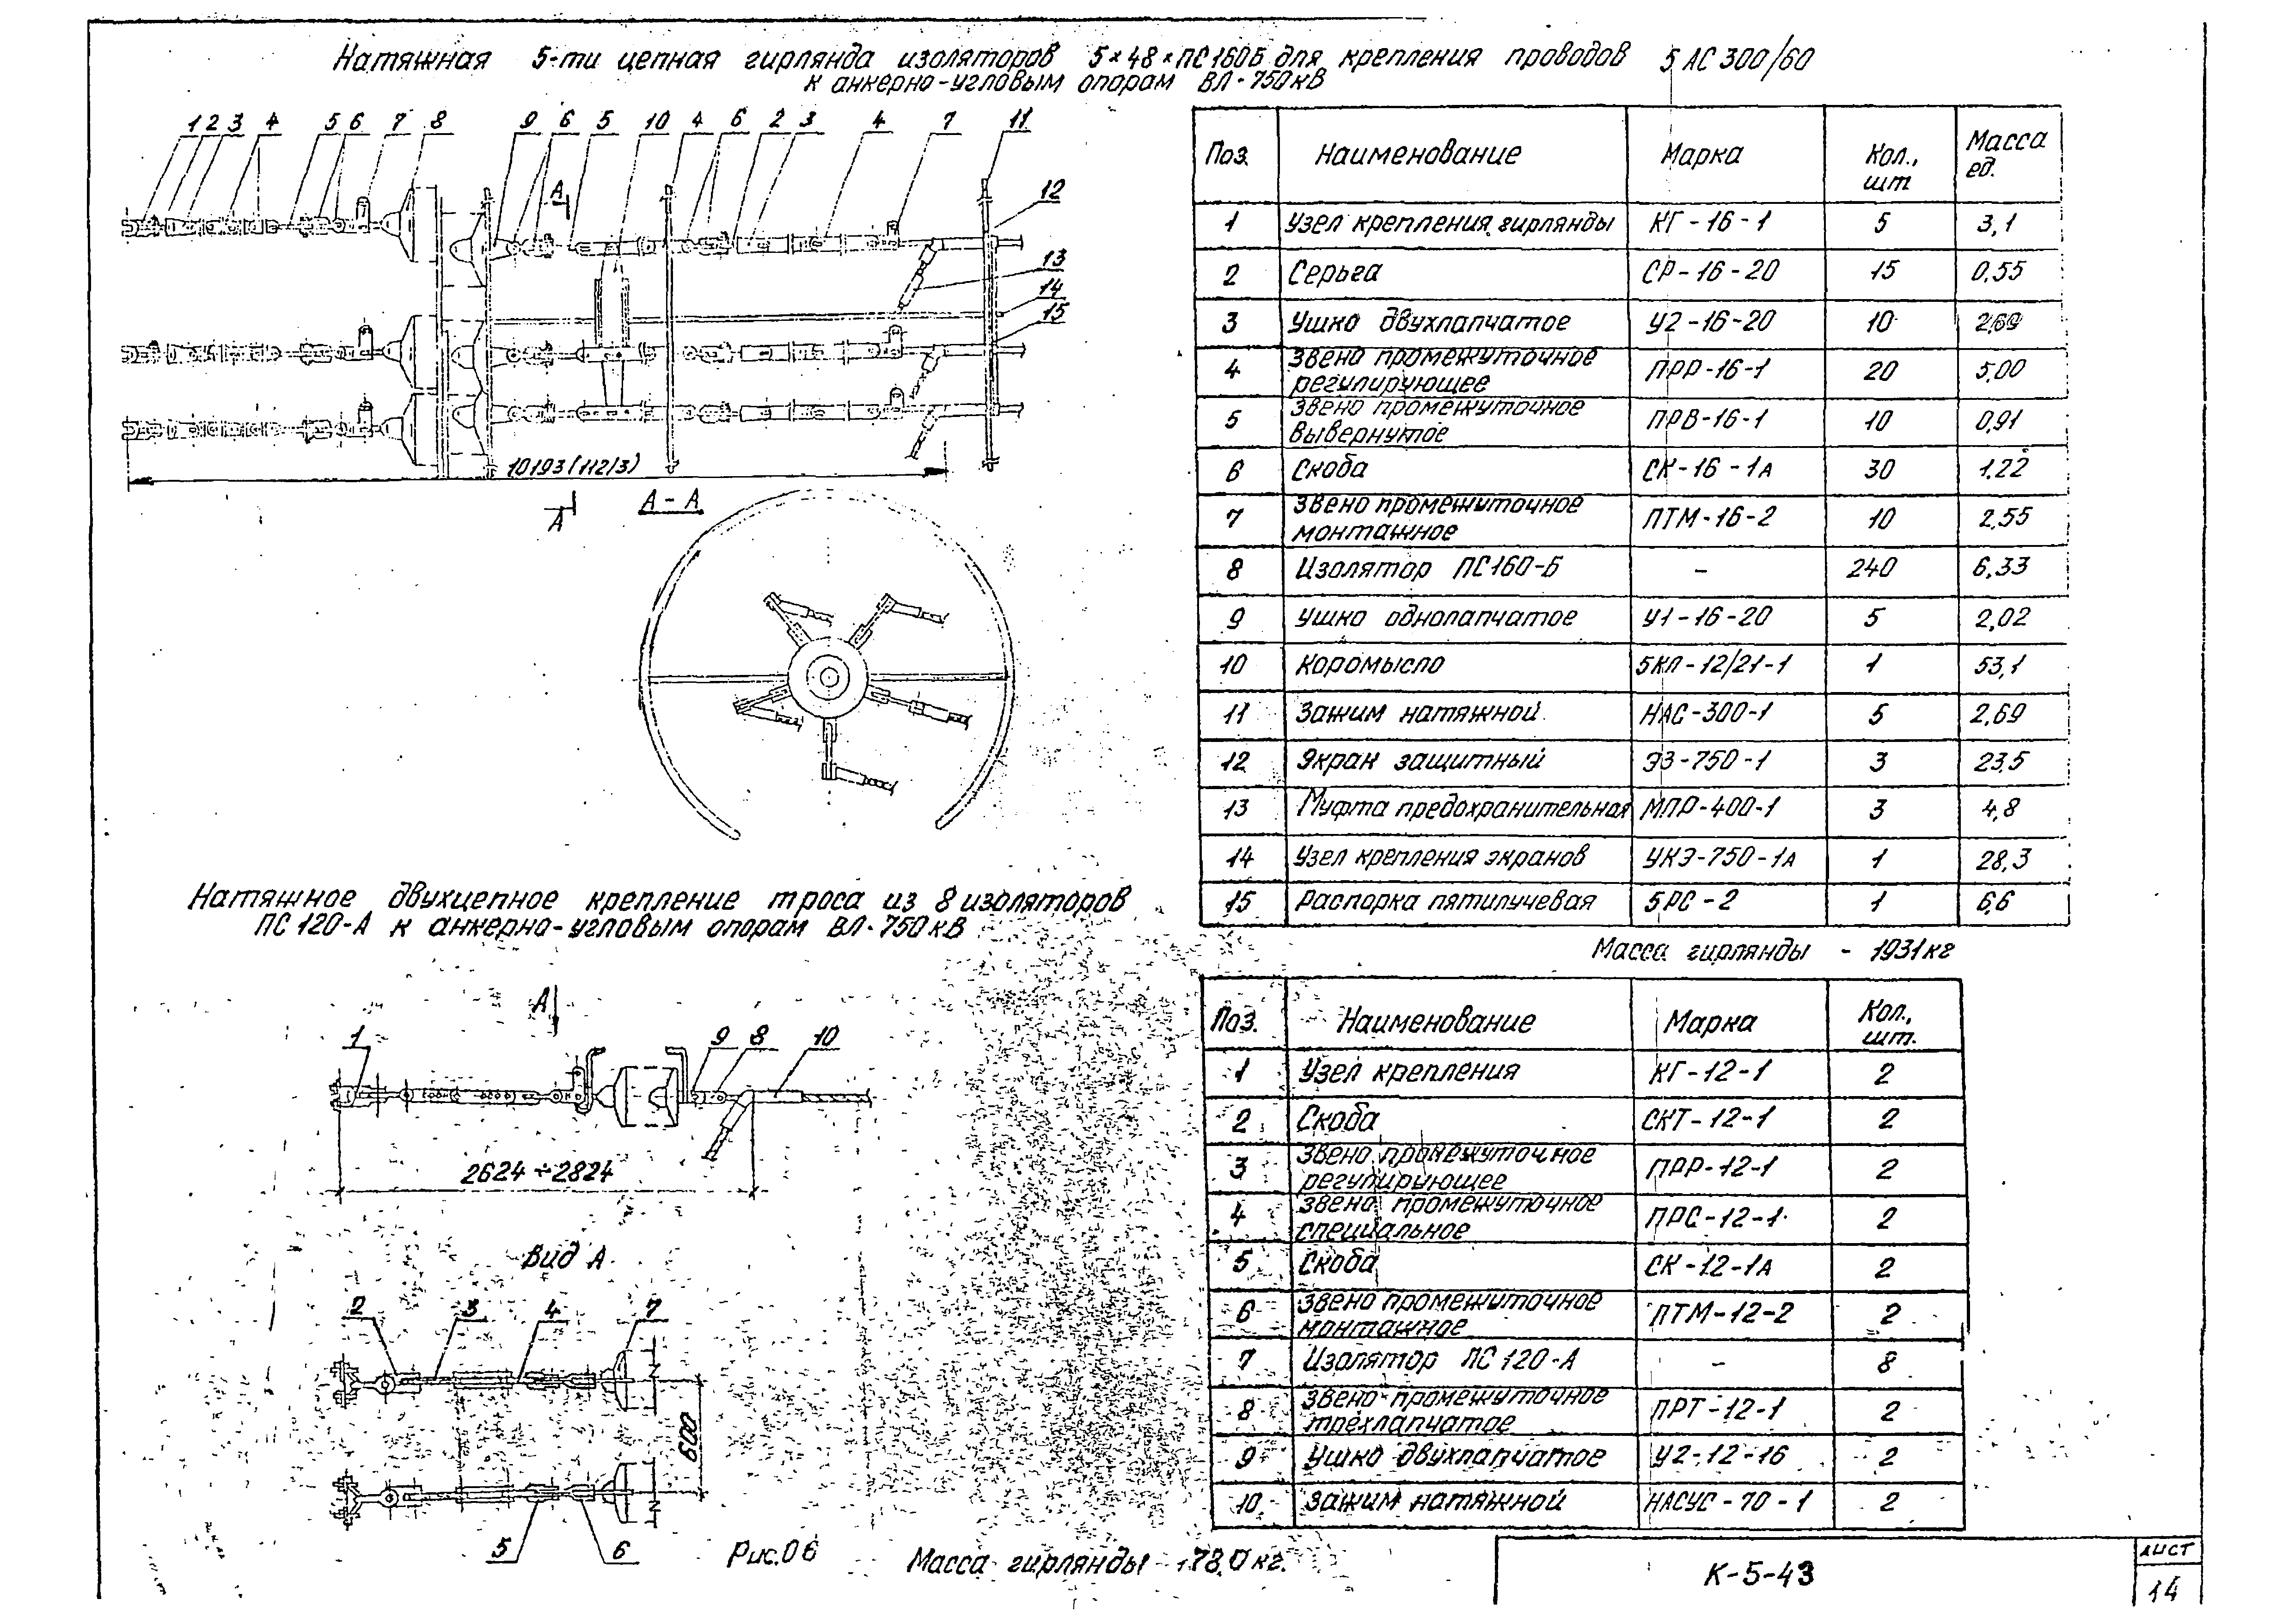 Натяжная 5-ти цепная гирлянда изоляторов 5×48×ПС160Б для крепления проводов 5АС300/60
к анкерно-угловым опорам ВЛ-750кВ
1 2 3 4 5 6 7 8 9 6 5 10 4 6 2 3 4 7 11
А
12
13
14
15
10193(11213)
А
А-А
Поз. Наименование Марка Кол., шт Масса ед.
1 Узел крепления гирлянды КГ-16-1 5 3,1
2 Серьга СР-16-20 15 0,55
3 Ушко двухлапчатое У2-16-20 10 2,69
4 Звено промежуточное регулирующее ПРР-16-1 20 5,00
5 Звено промежуточное вывернутое ПРВ-16-1 10 0,91
6 Скоба СК-16-1А 30 1,22
7 Звено промежуточное монтажное ПТМ-16-2 10 2,55
8 Изолятор ПС160-Б - 240 6,33
9 Ушко однолапчатое У1-16-20 5 2,02
10 Коромысло 5КЛ-12/21-1 1 53,1
11 Зажим натяжной НАС-300-1 5 2,69
12 Экран защитный ЭЗ-750-1 3 23,5
13 Муфта предохранительная МПР-400-1 3 4,8
14 Узел крепления экранов УКЭ-750-1А 1 28,3
15 Распорка пятилучевая 5РС-2 1 6,6
Масса гирлянды - 1931кг
Натяжное двухцепное крепление троса из 8 изоляторов
ПС120-А к анкерно-угловым опорам ВЛ-750кВ
А
1 9 8 10
2624÷2824
Вид А
2 3 4 7
600
5 6
Рис.06
Масса гирлянды - 178,0кг.
Поз. Наименование Марка Кол., шт.
1 Узел крепления КГ-12-1 2
2 Скоба СКТ-12-1 2
3 Звено промежуточное регулирующее ПРР-12-1 2
4 Звено промежуточное специальное ПРС-12-1 2
5 Скоба СК-12-1А 2
6 Звено промежуточное монтажное ПТМ-12-2 2
7 Изолятор ПС120-А - 8
8 Звено промежуточное трехлапчатое ПРТ-12-1 2
9 Ушко двухлапчатое У2-12-16 2
10 Зажим натяжной НАСУС-70-1 2
К-5-43
Лист
14